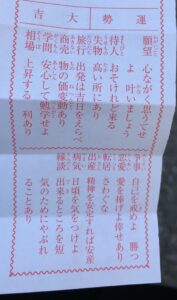 運勢 大吉
願望 心ながく思うてせ
よ 叶いましょう
待人 おそけれど来る
失物 高い所にあり
旅行 出発は吉日をえらべ
商売 物の価変動あり
学問 安心して勉学せよ
相場 上昇する 利あり
争事 自己を戒めよ 勝つ
恋愛 愛を捧げよ倖せあり
転居 さわぐな
出産 精神を安定すれば安産
病気 日頃を気をつけよ
縁談 出来るところを短
気のためにやぶれ
ることあり